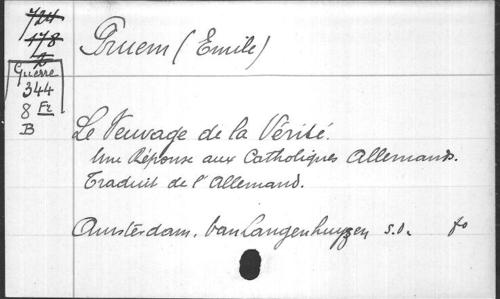 724
178
2
Guerre
344
8 Fr
B
Pruem (Emile)
Le Veuvage de la Vérité.
Une Réponse aux Catholiques Allemands.
Traduit de l'Allemand.
Amsterdam. Van Langenhuyzen s.d. fo